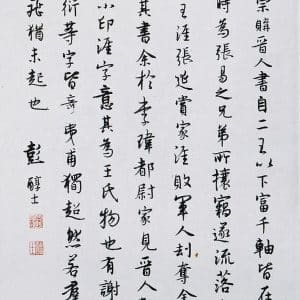 宗購晉人書自二王以下富千軸皆在
時為張易之兄弟所攘竊遂流落
王涯張延賞家涯敗軍人刦奪金
其書余於李瑋都尉家見晉人
小印涯字意其為王氏物也有謝
衍等字皆奇夷甫獨超然若羣
飛猶未起也 彭醇士